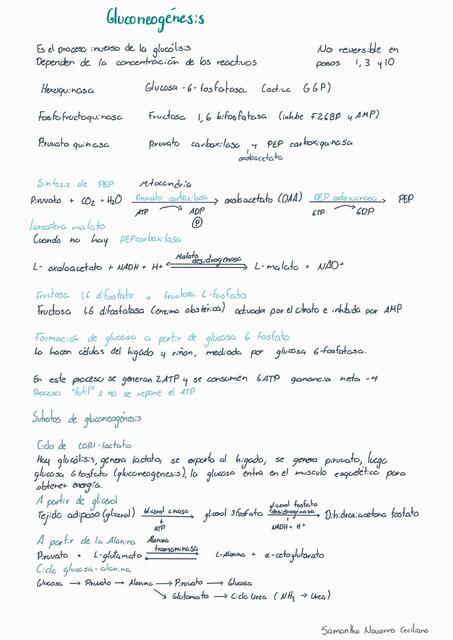 Gluconeogénesis
Es el proceso inverso de la glucólisis
Dependen de la concentración de los reactivos
No reversible en
pasos 1, 3 y 10
Hexoquinasa Glucosa-6-fosfatasa (activa G6P)
Fosfofructoquinasa Fructosa 1,6 bifosfatasa (inhibe F26BP y AMP)
Piruvato quinasa Piruvato carboxilasa y PEP carboxiquinasa
oxaloacetato
Síntesis de PEP Mitocondria
Piruvato + CO2 + H2O Piruvato carboxilasa oxaloacetato (OAA) PEP carboxicinasa PEP
ATP ADP GTP GDP
P
Lanzadera malato
Cuando no hay PEPcarboxilasa
L- oxaloacetato + NADH + H+ Malato desidrogenasa L-malato + NAD+
Fructosa 1,6 difosfato a fructosa 6-fosfato
Fructosa 1,6 difosfatasa (enzima alostérica) activada por el citrato e inhibida por AMP
Formación de glucosa a partir de glucosa 6 fosfato
Lo hacen células del hígado y riñon, mediada por glucosa 6-fosfatasa.
En este proceso se generan 2ATP y se consumen 6ATP ganancia neta -4
Proceso "futil" si no se repone el ATP
Sustratos de gluconeogénesis
Ciclo de CORI-lactato
Hay glucólisis, genera lactato, se exporta al hígado, se genera piruvato, luego
glucosa 6 fosfato (gluconeogénesis), la glucosa entra en el musculo esquelético para
obtener energía.
A partir de glicerol
Tejido adiposo (glicerol) Glicerol cinasa glicerol 3 fosfato glicerol fosfato desidrogenasa Dihidroxiacetona fosfato
ATP NADH + H+
A partir de la Alanina
Piruvato + L-glutamato Alanina transaminasa L-Alanina + α-cetoglutarato
Ciclo glucosa-alanina
Glucosa → Piruvato → Alanina → Piruvato → Glucosa
Glutamato → Ciclo Urea (NH3 → Urea)
Samantha Navarro Ceciliano